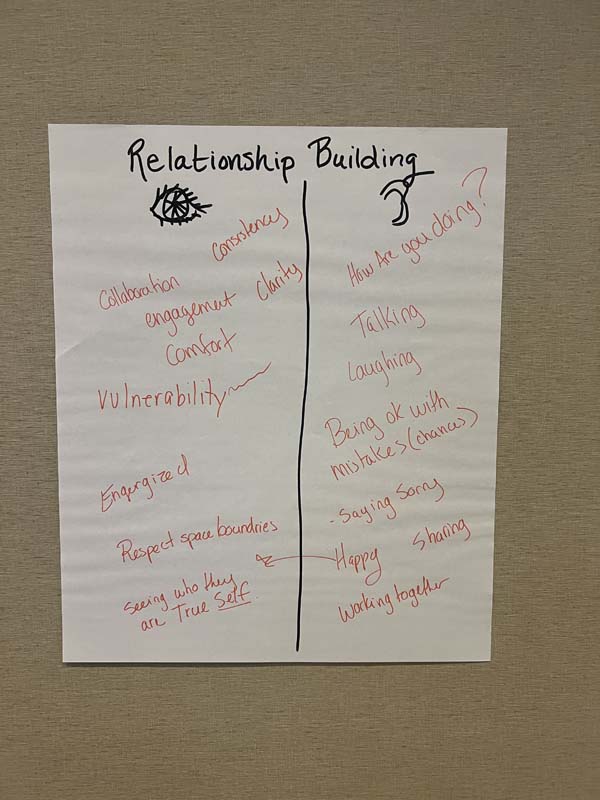 Relationship Building
Consistency
Collaboration
engagement Clarity
Comfort
Vulnerability
Engergized
Respect space boundries
Seeing who they
are True Self.
How Are you doing?
Talking
Laughing
Being ok with
mistakes (chances)
- Saying Sorry
Happy Sharing
Working together